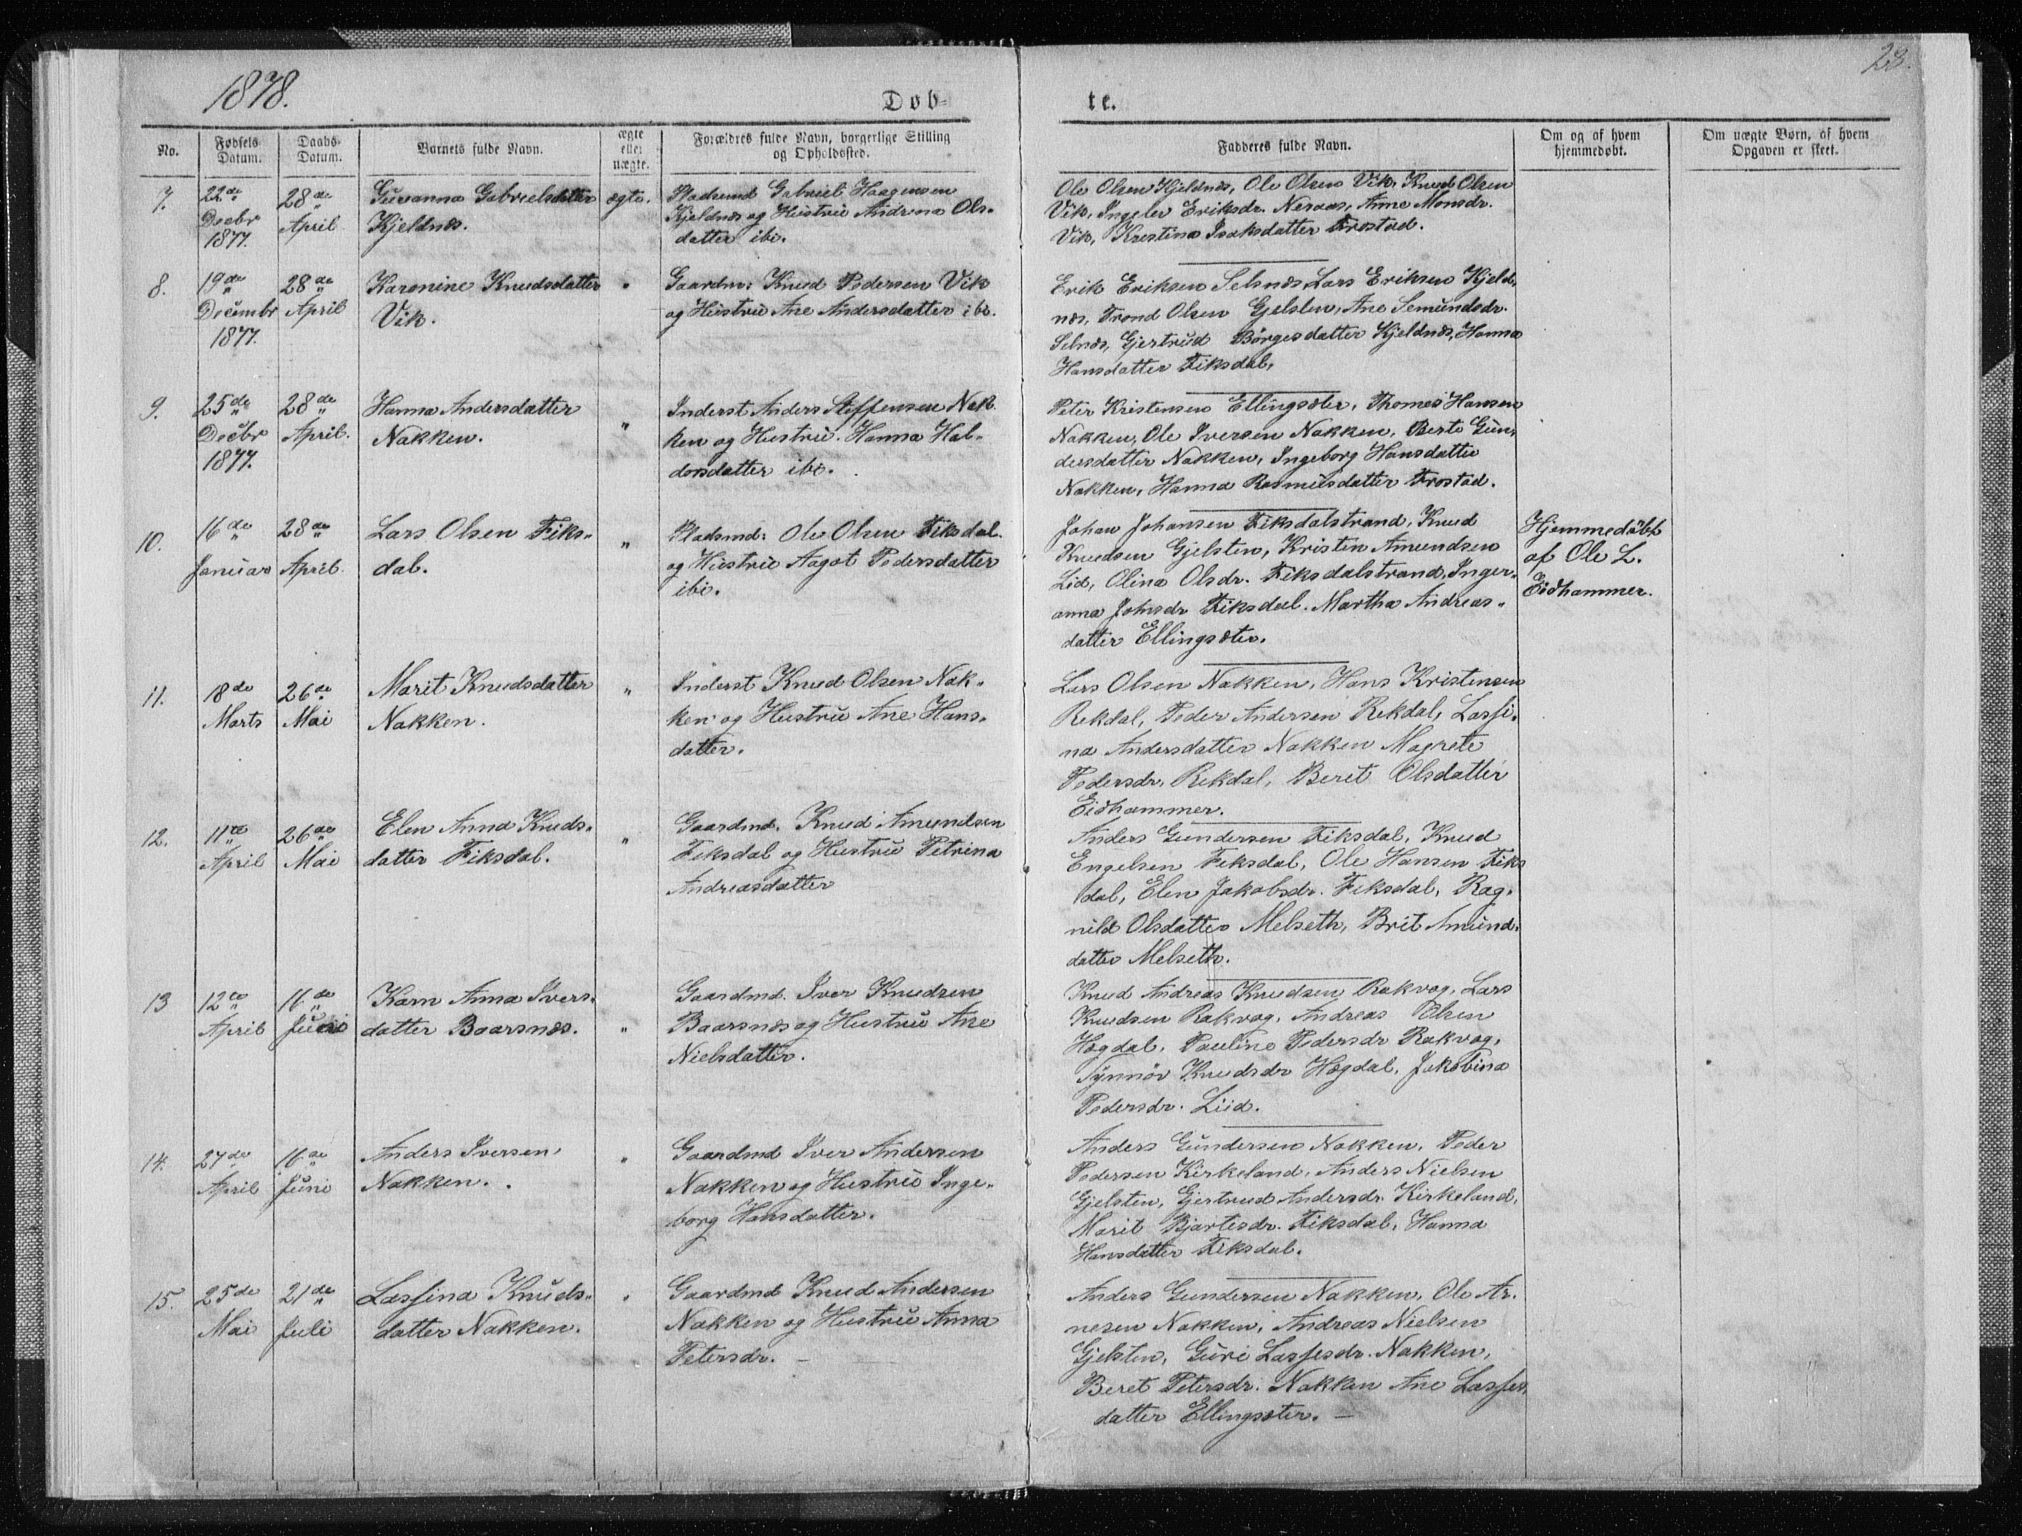 1878.
23.
Døb-
te.
No.
Fødsels Datum.
Daabs-Datum.
Barnets fulde Navn.
ægte eller uægte.
Forældres fulde Navn, borgerlige Stilling og Opholdssted.
Fadderes fulde Navn.
Om og af hvem hjemmedøbt.
Om uægte Børn, af hvem Opgaven er skeet.
7.
22de
Decbr
1877.
28de
April
Gabrielsdatter
Kjeldnes.
ægte.
Pladsmd Gabriel Haagensen
Kjeldnes og Hustru Andrina Ols-
datter ibi.
Ole Olsen Kjeldnes, Ole Olsen Vik, Knud Olsen
Vik, Ingeler Eriksdr. Neraas, Anne Monsdr.
Vik, Kristina Isaksdatter Frostad.
8.
19de
Decembr
1877.
28de
April
Karenine Knudsdatter
Vik.
"
Gaardm: Knud Pedersen Vik
og Hustru Ane Andersdatter ibi.
Erik Eriksen Selsnes, Lars Eriksen Kjeld-
nes, Trond Olsen Gjelsten, Ane Semundsdr.
Selnes, Gjertrud Børgesdatter Kjeldnes, Hanna
Hansdatter Fiksdal.
9.
25de
Decbr
1877.
28de
April.
Hanna Andersdatter
Nakken.
"
Inderst Anders Steffensen Nak-
ken og Hustru Hanna Hal-
dorsdatter ibi.
Peter Kristensen Ellingsæter, Thomes Hansen
Nakken, Ole Iversen Nakken, Berte Gun-
dersdatter Nakken, Ingeborg Hansdatter
Nakken, Hanna Rasmusdatter Frostad.
10.
16de
Januar
28de
April.
Lars Olsen Fiks-
dal.
"
Pladsmd: Ole Olsen Fiksdal
og Hustru Aagot Pedersdatter
ibi.
Johan Johansen Fiksdalstrand, Knud
Knudsen Gjelsten, Kristen Amundsen
Lid, Olina Olsdr. Fiksdalstrand, Inger-
anna Johsdr Fiksdal. Martha Andreas-
datter Ellingsæter.
Hjemmedøbt
af Ole L.
Eidhammer.
11.
18de
Marts
26de
Mai
Marit Knudsdatter
Nakken.
"
Inderst Knud Olsen Nak-
ken og Hustru Ane Hans-
datter.
Lars Olsen Nakken, Hans Kristensen
Rekdal, Peder Andersen Rekdal, Lassi-
na Andersdatter Nakken Magrete
Pedersdr. Rekdal, Beret Olsdatter
Eidhammer.
12.
11te
April
26de
Mai
Elen Anna Knuds-
datter Fiksdal.
"
Gaardmd. Knud Amundsen
Fiksdal og Hustru Petrina
Andreasdatter
Anders Gundersen Fiksdal, Knud
Engelsen Fiksdal, Ole Hansen Fiks
dal, Elen Jakobsdr. Fiksdal, Rag-
nild Olsdatter Melseth, Brit Amund-
datter Melseth.
13
12te
April
16de
Juni
Karn Anna Ivers-
datter Baarsnes.
"
Gaardmd. Iver Knudsen
Baarsnes og Hustru Ane
Nielsdatter.
Knud Andreas Knudsen Rakvag, Lars
Knudsen Rakvag, Andreas Olsen
Hægdal, Pauline Pedersdr Rakvag,
Synnøv Knudsdr Hægdal, Jakobina
Pedersdr. Liid.
14.
27de
April
16de
Juni
Anders Iversen
Nakken.
"
Gaardmd Iver Andersen
Nakken og Hustru Inge-
borg Hansdatter.
Anders Gundersen Nakken, Peder
Pedersen Kirkeland, Anders Nielsen
Gjelsten, Gjertrud Andersdr. Kirkeland,
Marit Bjartesdr. Fiksdal, Hanna
Hansdatter Fiksdal.
15.
25de
Mai
21de
Juli
Lassina Knuds-
datter Nakken.
"
Gaardmd Knud Andersen
Nakken og Hustru Anna
Petersdr.
Anders Gundersen Nakken, Ole Ar-
nesen Nakken, Andreas Nielsen
Gjelsten, Guri Lassesdr. Nakken,
Beret Petersdr. Nakken Ane Lasses
datter Ellingsæter.